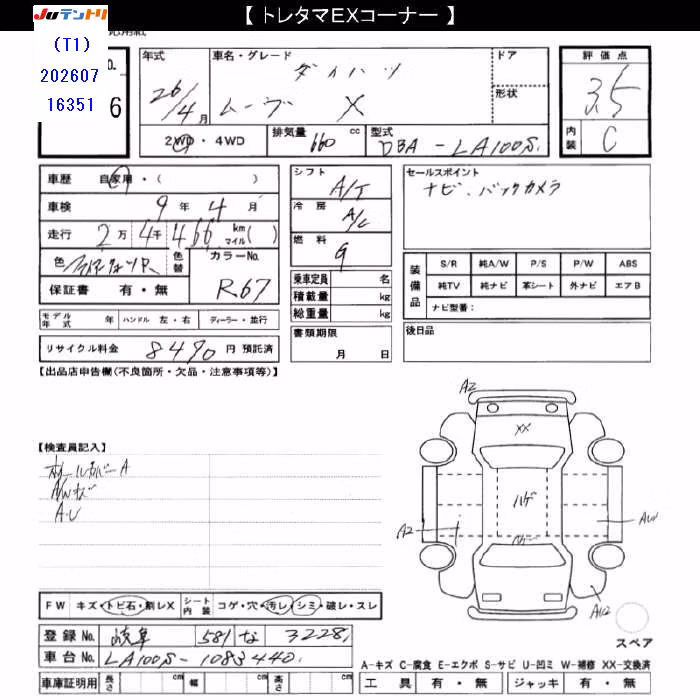 【 トレタマEXコーナー 】
JUテントリ
(T1)
202607
16351
応用紙
No.
6
年式 26/4月
車名・グレード ダイハツ
ムーヴ X
ドア
形状
2WD・4WD
排気量 660 cc
型式 DBA-LA100S
評価点 3.5
内装 C
車歴 自家用・( )
車検 9年 4月
走行 2万 4千 466 km マイル( )
色
色替
カラーNo. R67
保証書 有・無
モデル年式 年 ハンドル 左・右 ディーラー・並行
リサイクル料金 8490 円 預託済
シフト A/T
冷房 A/C
燃料 G
乗車定員 名
積載量 kg
総重量 kg
書類期限
月 日
セールスポイント
ナビ、バックカメラ
装備品
S/R 純A/W P/S P/W ABS
純TV 純ナビ 革シート 外ナビ エアB
ナビ型番：
後日品
【出品店申告欄(不良箇所・欠品・注意事項等)】
【検査員記入】
ホイールカバーA
A・U
A2
XX
ハゲ
A2
FW キズ・トビ石・割レX
シート内装 コゲ・穴・汚レ・シミ・破レ・スレ
登録No. 岐阜 581 な 3228
車台No. LA100S-1083440
車庫証明用 長さ cm 幅 cm 高さ cm
スペア
A-キズ C-腐食 E-エクボ S-サビ U-凹ミ W-補修 XX-交換済
工具 有・無 ジャッキ 有・無